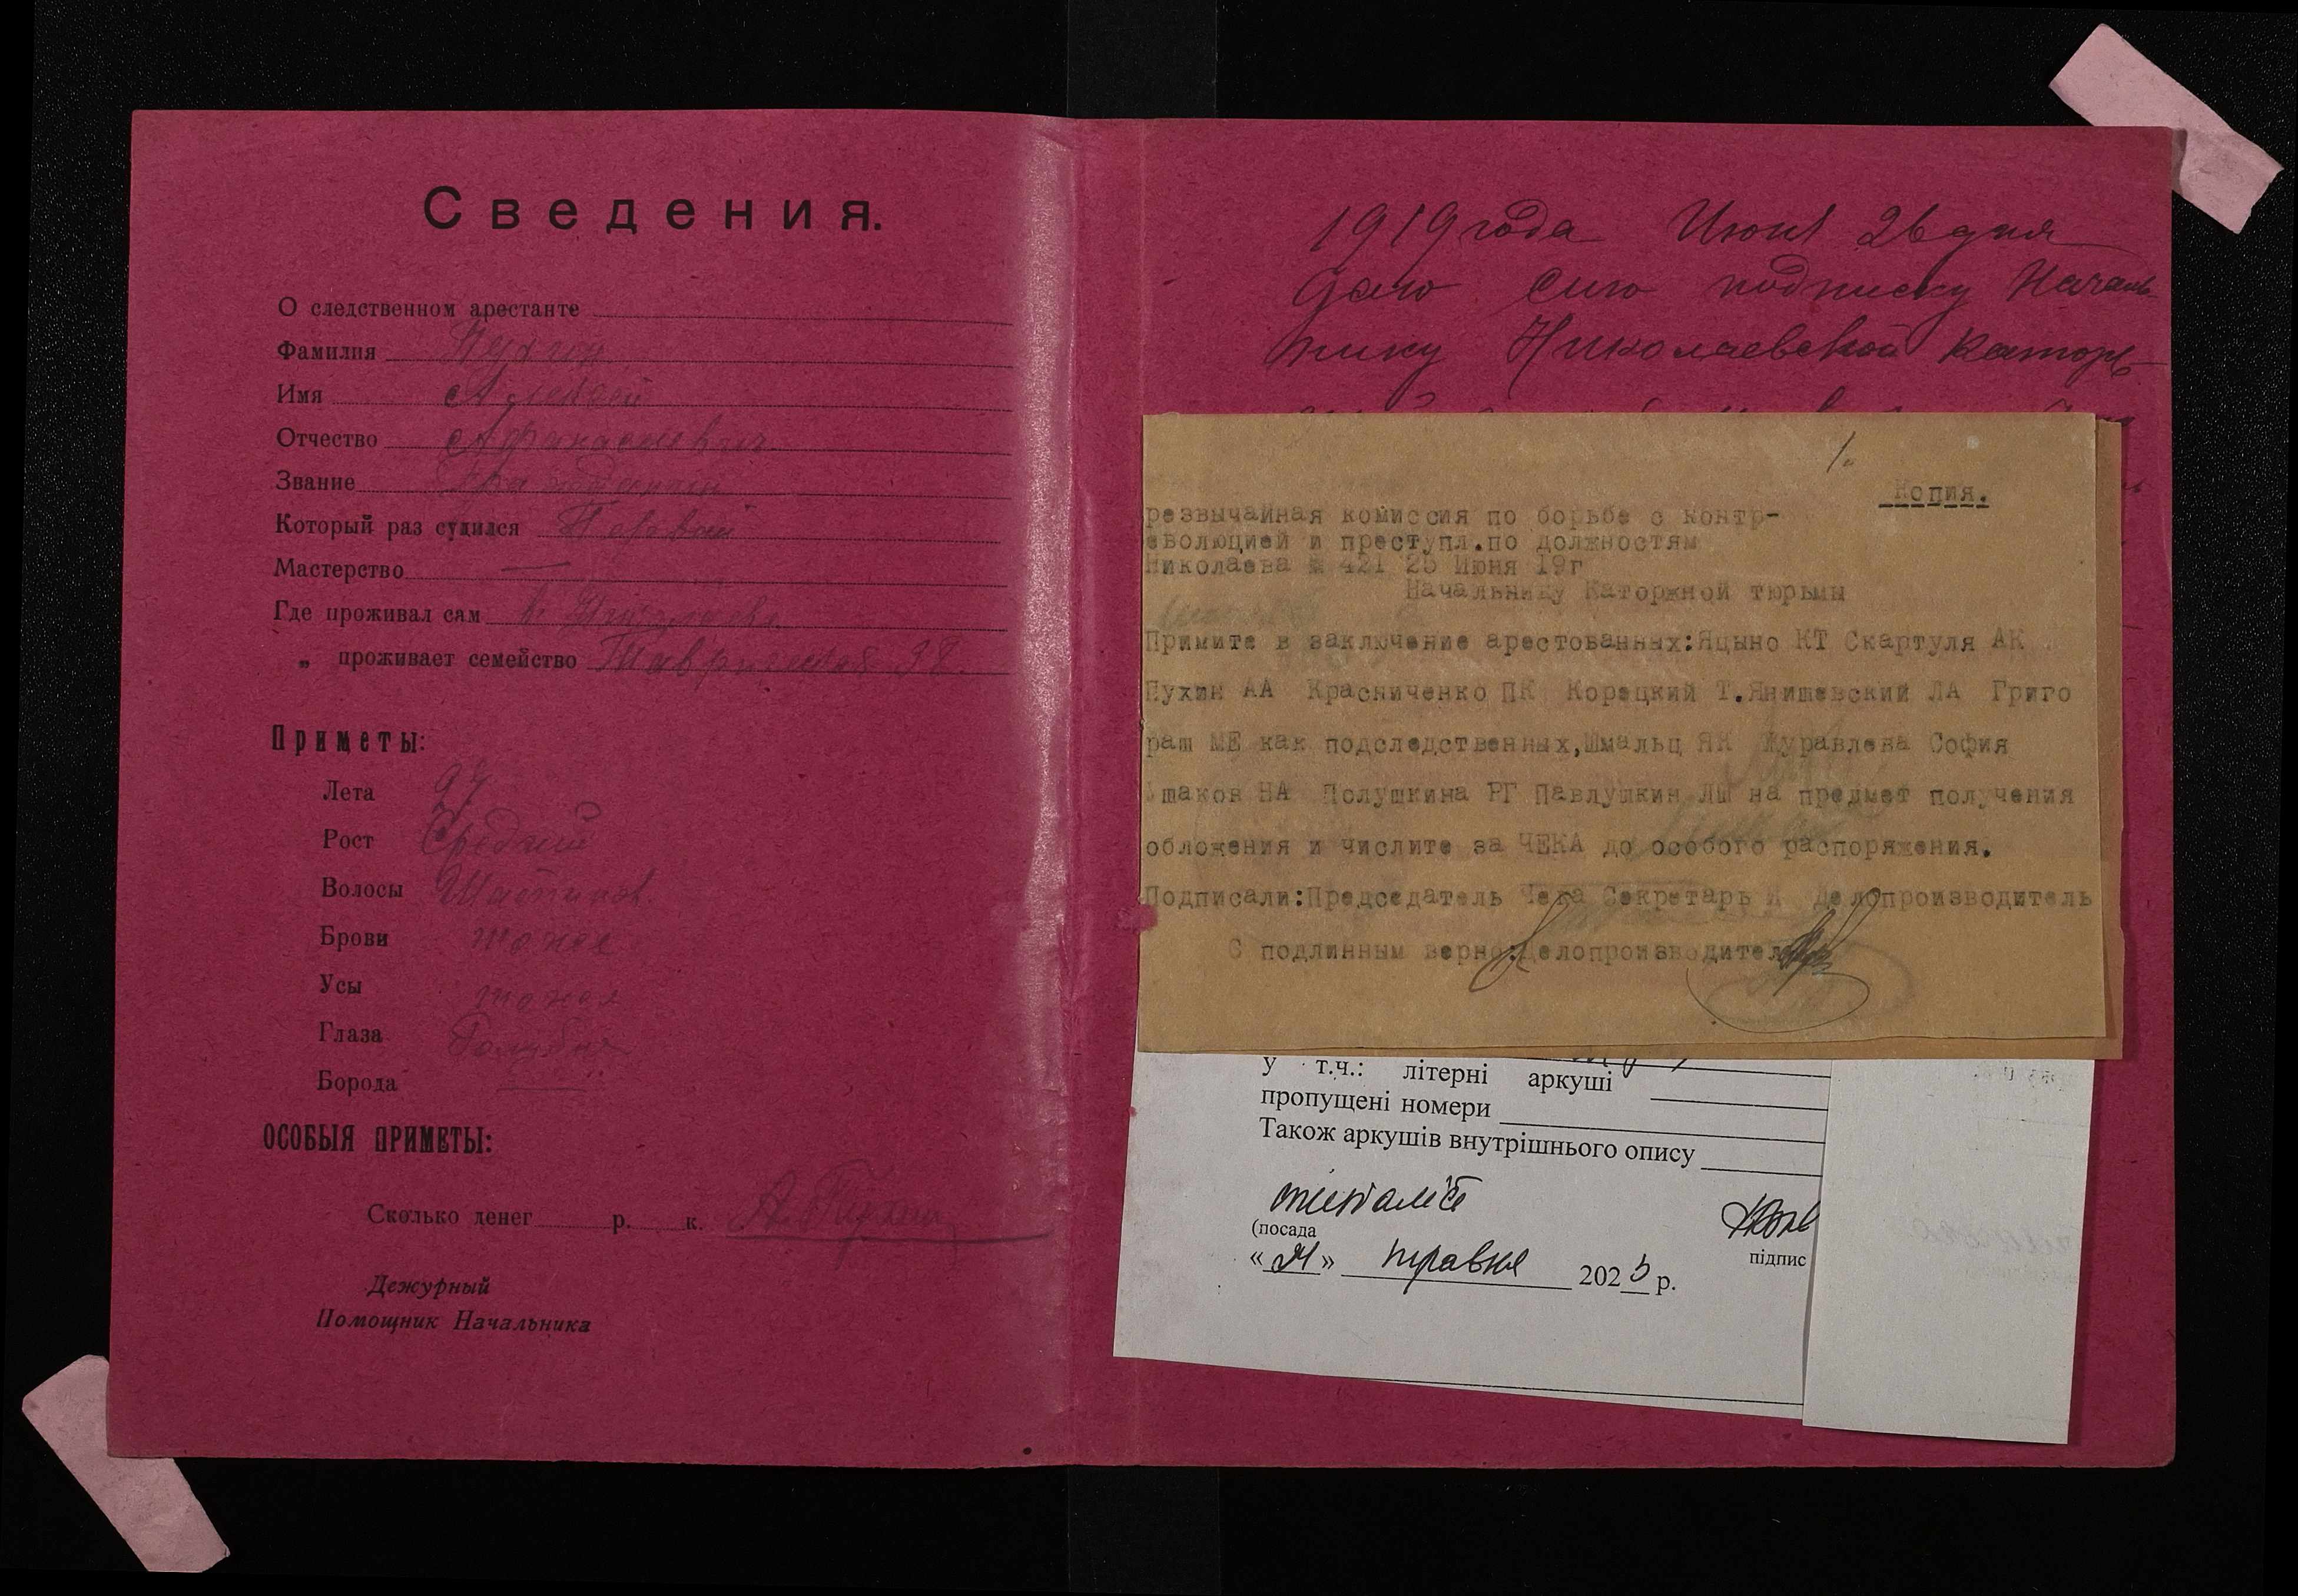 Сведения.
О следственном арестанте
Фамилия Пухин
Имя Алексей
Отчество Афанасиевич
Звание Гражданин
Который раз судился Первый
Мастерство —
Где проживал сам в Николаеве
„ проживает семейство Таврическая 38.
Приметы:
Лета
Рост Средний
Волосы Шатинов.
Брови тоже
Усы тоже
Глаза Голубые
Борода —
ОСОБЫЯ ПРИМЕТЫ:
Сколько денег р. к. А. Пухин
Дежурный
Помощник Начальника
1919 года Июня 26 дня
даю сию подписку Началь-
нику Николаевской Каторж-
1.
Копия.
резвычайная комиссия по борьбе с контр-
еволюцией и преступл.по должностям
Николаева № 421 25 Июня 19г
Начальнику Каторжной тюрьмы
Примите в заключение арестованных:Яцыно КТ Скартуля АК
Пухин АА Красниченко ПК Корецкий Т.Янишевский ЛА Григо
раш МЕ как подследственных,Шмальц ЯК Журавлева София
шаков НА Полушкина РГ Павлушкин ЛШ на предмет получения
обложения и числите за ЧЕКА до особого распоряжения.
Подписали:Председатель Чека Секретарь И Делопроизводитель
С подлинным верно:Делопроизводитель
у т.ч.: літерні аркуші
пропущені номери
Також аркушів внутрішнього опису
спеціаліст
(посада
підпис
«21» травня 2025 р.